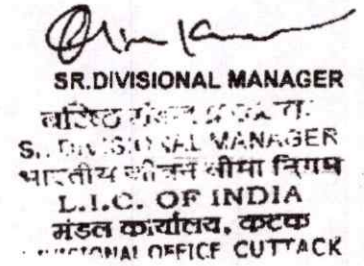 SR.DIVISIONAL MANAGER
वरिष्ठ
S.. DIVISIONAL MANAGER
भारतीय जीवन बीमा निगम
L.I.C. OF INDIA
मंडल कार्यालय, कटक
DIVISIONAL OFFICE CUTTACK